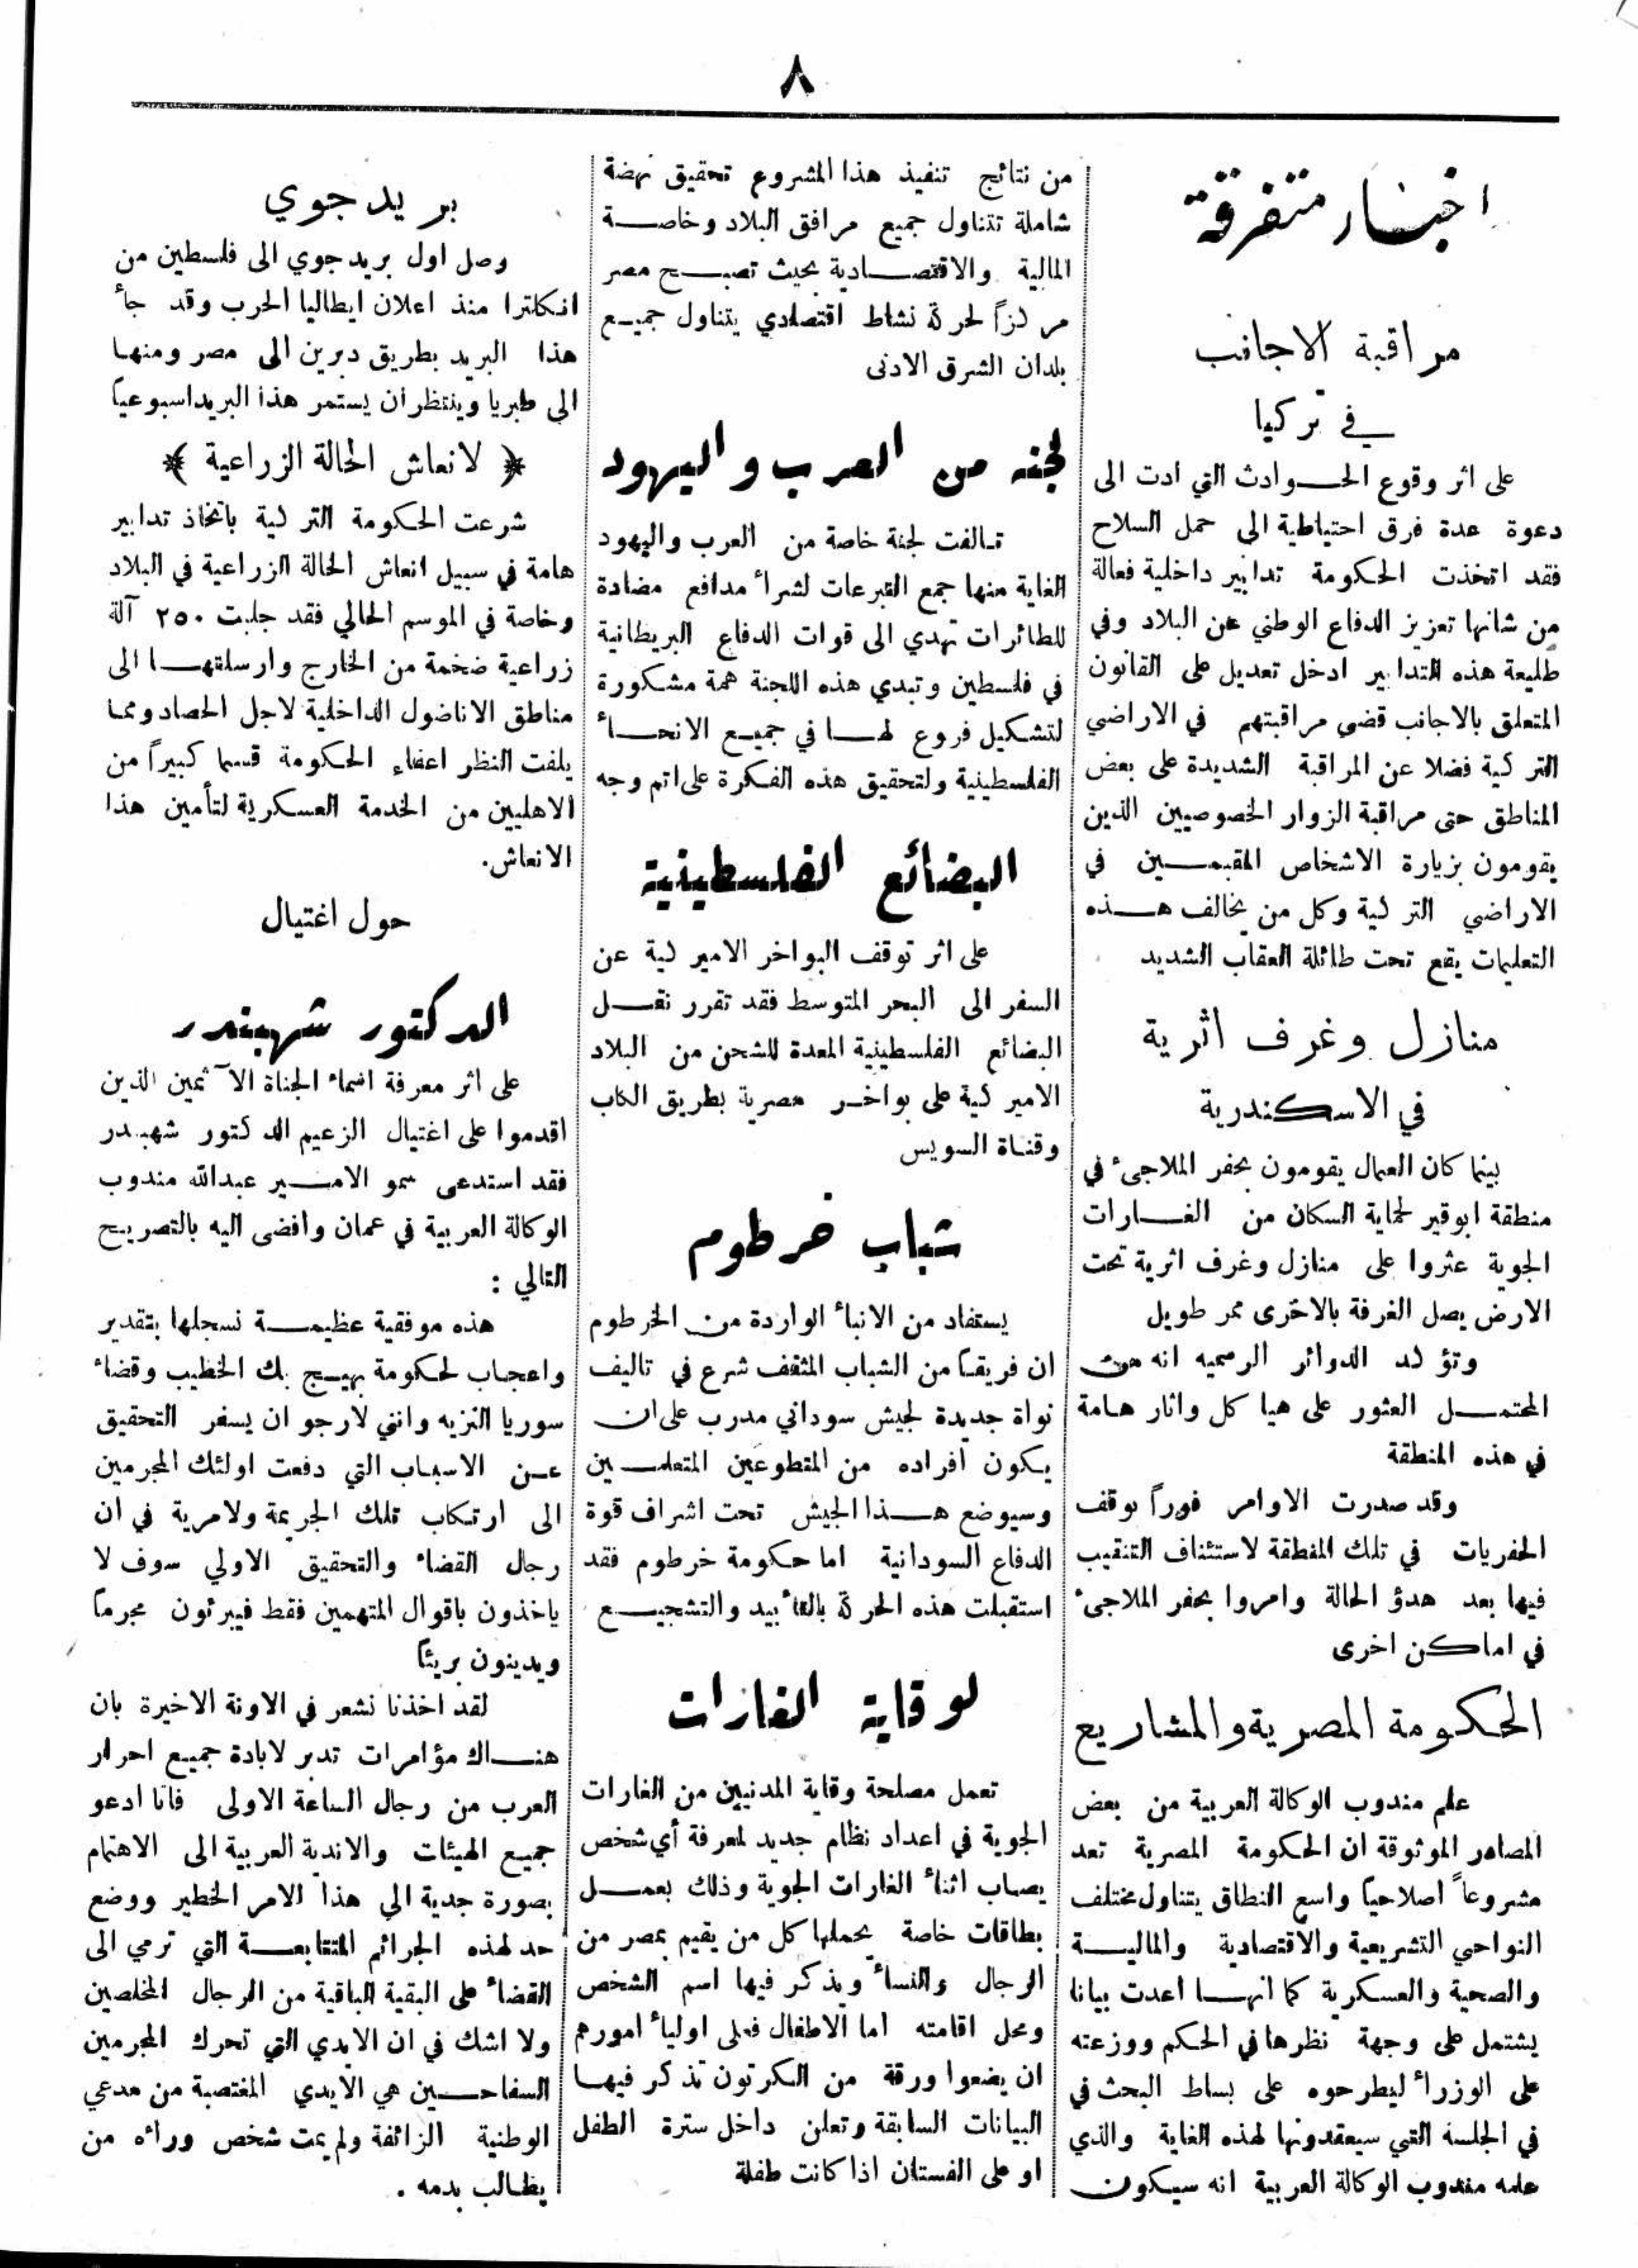 ٨
اخبار متفرقة
مراقبة الاجانب
في تركيا
على اثر وقوع الحوادث التي ادت الى
دعوة عدة فرق احتياطية الى حمل السلاح
فقد اتخذت الحكومة تدابير داخلية فعالة
من شانها تعزيز الدفاع الوطني عن البلاد وفي
طليعة هذه التدابير ادخل تعديل على القانون
المتعلق بالاجانب قضى مراقبتهم في الاراضي
التركية فضلا عن المراقبة الشديدة على بعض
المناطق حتى مراقبة الزوار الخصوصيين الذين
يقومون بزيارة الاشخاص المقيمين في
الاراضي التركية وكل من يخالف هذه
التعليمات يقع تحت طائلة العقاب الشديد
منازل وغرف اثرية
في الاسكندرية
بينما كان العمال يقومون بحفر الملاجىء في
منطقة ابوقير لحماية السكان من الغارات
الجوية عثروا على منازل وغرف اثرية تحت
الارض يصل الغرفة بالاخرى ممر طويل
وتؤكد الدوائر الرسميه انه من
المحتمل العثور على هيا كل واثار هامة
في هذه المنطقة
وقد صدرت الاوامر فوراً بوقف
الحفريات في تلك المنطقة لاستئناف التنقيب
فيها بعد هدؤ الحالة وامروا بحفر الملاجىء
في اماكن اخرى
الحكومة المصرية والمشاريع
علم مندوب الوكالة العربية من بعض
المصادر الموثوقة ان الحكومة المصرية تعد
مشروعاً اصلاحياً واسع النطاق يتناول مختلف
النواحي التشريعية والاقتصادية والمالية
والصحية والعسكرية كما انها اعدت بيانا
يشتمل على وجهة نظرها في الحكم ووزعته
على الوزراء ليطرحوه على بساط البحث في
في الجلسة التي سيعقدونها لهذه الغاية والذي
علمه مندوب الوكالة العربية انه سيكون
من نتائج تنفيذ هذا المشروع تحقيق نهضة
شاملة تتناول جميع مرافق البلاد وخاصة
المالية والاقتصادية بحيث تصبح مصر
مركزاً لحركة نشاط اقتصادي يتناول جميع
بلدان الشرق الادنى
لجنه من العرب واليهود
تالفت لجنة خاصة من العرب واليهود
الغاية منها جمع التبرعات لشراء مدافع مضادة
للطائرات تهدي الى قوات الدفاع البريطانية
في فلسطين وتبدي هذه اللجنة همة مشكورة
لتشكيل فروع لها في جميع الانحاء
الفلسطينية ولتحقيق هذه الفكرة على اتم وجه
البضائع الفلسطينية
على اثر توقف البواخر الاميركية عن
السفر الى البحر المتوسط فقد تقرر نقل
البضائع الفلسطينية المعدة للشحن من البلاد
الاميركية على بواخر مصرية بطريق الكاب
وقناة السويس
شباب خرطوم
يستفاد من الانباء الواردة من الخرطوم
ان فريقا من الشباب المثقف شرع في تاليف
نواة جديدة لجيش سوداني مدرب على ان
يكون أفراده من المتطوعين المتعلمين
وسيوضع هذا الجيش تحت اشراف قوة
الدفاع السودانية اما حكومة خرطوم فقد
استقبلت هذه الحركة بالتأييد والتشجيع
لوقاية الغارات
تعمل مصلحة وقاية المدنيين من الغارات
الجوية في اعداد نظام جديد لمعرفة أي شخص
يصاب اثناء الغارات الجوية وذلك بعمل
بطاقات خاصة يحملها كل من يقيم بمصر من
الرجال والنساء ويذكر فيها اسم الشخص
ومحل اقامته اما الاطفال فعلى اولياء امورهم
ان يضعوا ورقة من الكرتون تذكر فيها
البيانات السابقة وتعلن داخل سترة الطفل
او على الفستان اذا كانت طفلة
بريد جوي
وصل اول بريد جوي الى فلسطين من
انكلترا منذ اعلان ايطاليا الحرب وقد جاء
هذا البريد بطريق دبرين الى مصر ومنها
الى طبريا وينتظر ان يستمر هذا البريد اسبوعياً
﴿ لانعاش الحالة الزراعية ﴾
شرعت الحكومة التركية باتخاذ تدابير
هامة في سبيل انعاش الحالة الزراعية في البلاد
وخاصة في الموسم الحالي فقد جلبت ٢٥٠ آلة
زراعية ضخمة من الخارج وارسلتها الى
مناطق الاناضول الداخلية لاجل الحصاد ومما
يلفت النظر اعفاء الحكومة قسما كبيراً من
الاهليين من الخدمة العسكرية لتأمين هذا
الانعاش.
حول اغتيال
الدكتور شهبندر
على اثر معرفة اسماء الجناة الآثمين الذين
اقدموا على اغتيال الزعيم الدكتور شهبندر
فقد استدعى سمو الامير عبدالله مندوب
الوكالة العربية في عمان وافضى اليه بالتصريح
التالي :
هذه موفقية عظيمة نسجلها بتقدير
واعجاب لحكومة بهيج بك الخطيب وقضاء
سوريا النزيه وانني لارجو ان يسفر التحقيق
عن الاسباب التي دفعت اولئك المجرمين
الى ارتكاب تلك الجريمة ولامرية في ان
رجال القضاء والتحقيق الاولي سوف لا
ياخذون باقوال المتهمين فقط فيبرئون مجرما
ويدينون بريئاً
لقد اخذنا نشعر في الاونة الاخيرة بان
هناك مؤامرات تدبر لابادة جميع احرار
العرب من رجال الساعة الاولى فانا ادعو
جميع الهيئات والاندية العربية الى الاهتمام
بصورة جدية الى هذا الامر الخطير ووضع
حد لهذه الجرائم المتتابعة التي ترمي الى
القضاء على البقية الباقية من الرجال المخلصين
ولا اشك في ان الايدي التي تحرك المجرمين
السفاحين هي الايدي المغتصبة من مدعي
الوطنية الزائفة ولم يمت شخص وراءه من
يطالب بدمه .